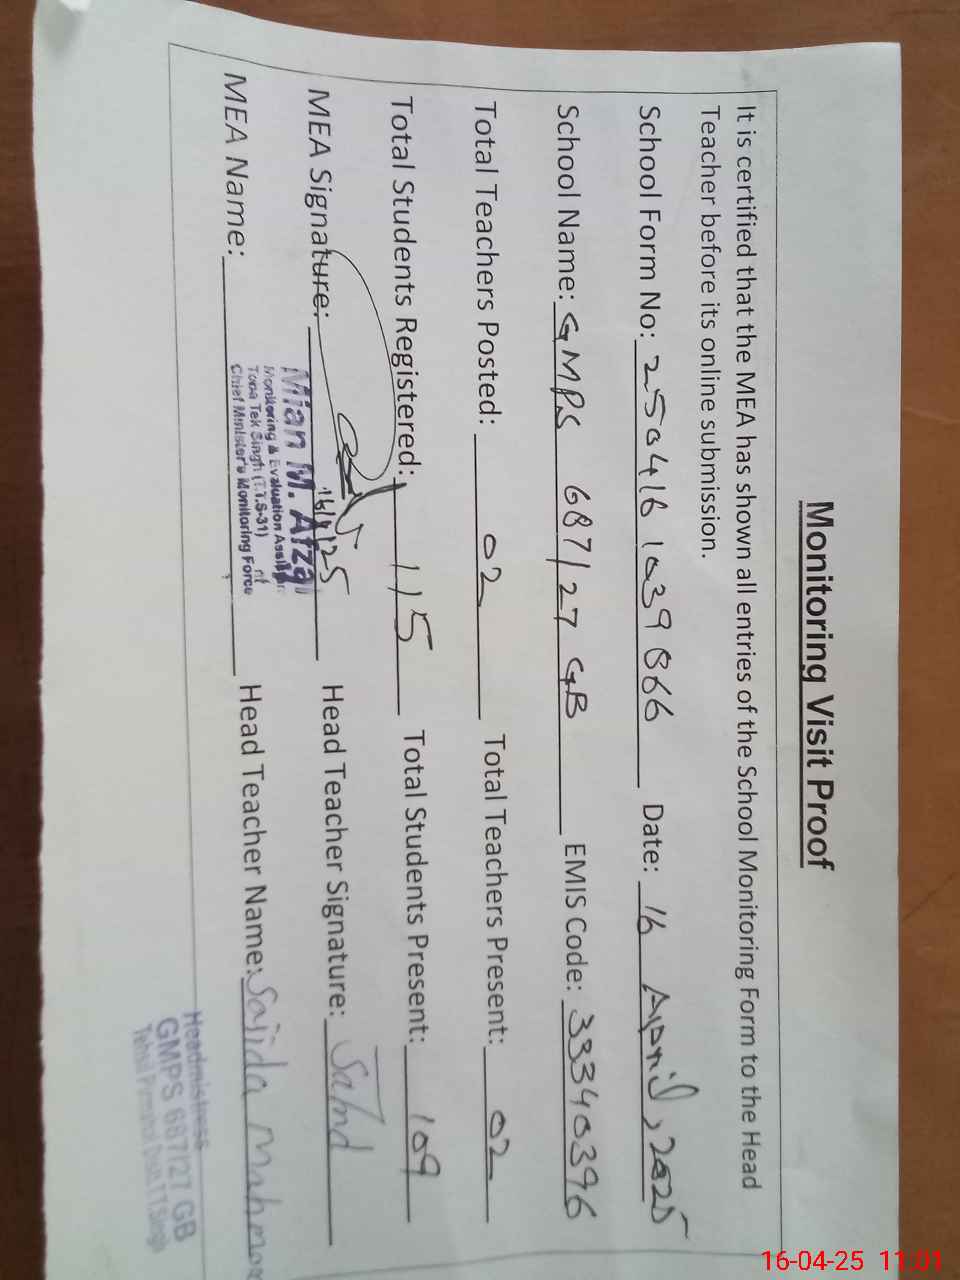 Monitoring Visit Proof
It is certified that the MEA has shown all entries of the School Monitoring Form to the Head
Teacher before its online submission.
School Form No: 250416 1039866 Date: 16 April, 2025
School Name: GMPS 687/27 GB EMIS Code: 33340396
Total Teachers Posted: 02 Total Teachers Present: 02
Total Students Registered: 115 Total Students Present: 109
MEA Signature: 16/4/25 Head Teacher Signature:
Mian M. Afzal
Monitoring & Evaluation Assistant
Toba Tek Singh (T.T.S-31)
Chief Minister's Monitoring Force
MEA Name: Head Teacher Name: Sajida
Headmistress
GMPS 687/27 GB
16-04-25 11:01